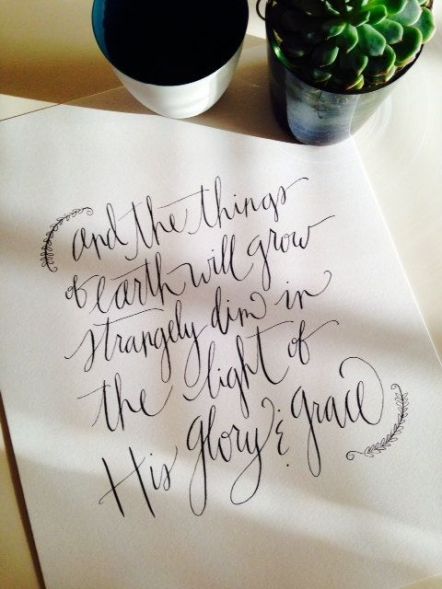 and the things
of earth will grow
strangely dim in
the light of
His glory & grace